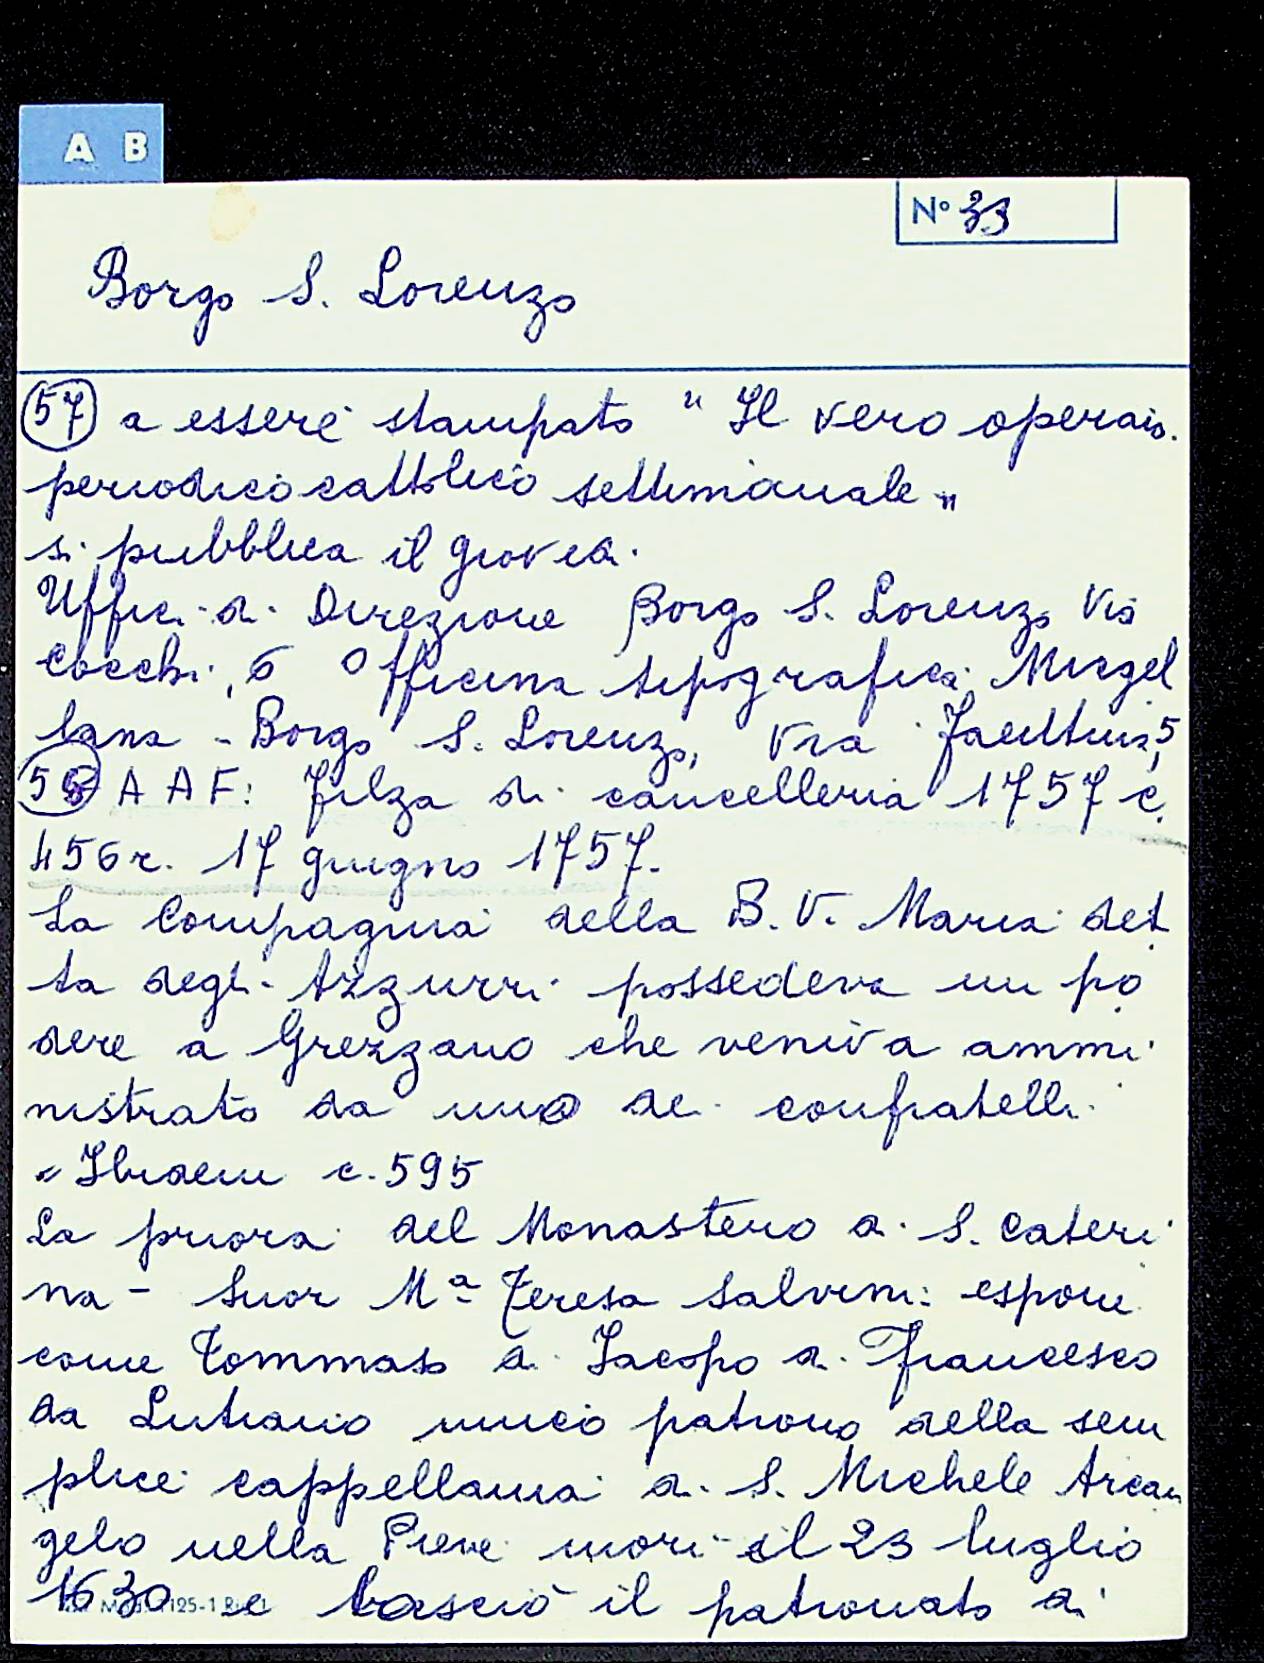 A B
N° 33
Borgo S. Lorenzo
57 a essere stampato "Il vero operaio.
periodico cattolico settimanale"
si pubblica il giovedì.
Uffici di Direzione Borgo S. Lorenzo Via
Cocchi, 6 Officina tipografica Mugel
lana - Borgo S. Lorenzo, Via 5
58 A A F: Filza di cancelleria 1757 c.
456r. 17 giugno 1757.
La Compagnia della B. V. Maria det
ta degli Azzurri possedeva un po
dere a Grezzano che veniva ammi
nistrato da uno dei confratelli.
" Ibidem c. 595
La priora del Monastero di S. Cateri
na - Suor Mª Teresa Salvini: espone
come Tommaso di Jacopo di Francesco
da Lutiano unico patrono della sem
plice cappellania di S. Michele Arcan
gelo nella Pieve morì il 23 luglio
1630 e lasciò il patronato di